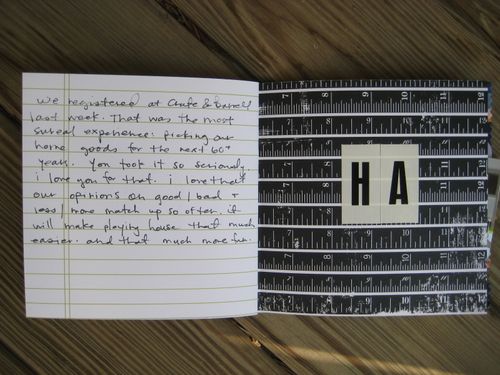 we registered at Crate & Barrell
last week. That was the most
surreal experience: picking our
home goods for the next 60+
years. You took it so seriously.
i love you for that. i love that
our opinions on good / bad +
less / more match up so often. it
will make playing house that much
easier. and that much more fun.
HA